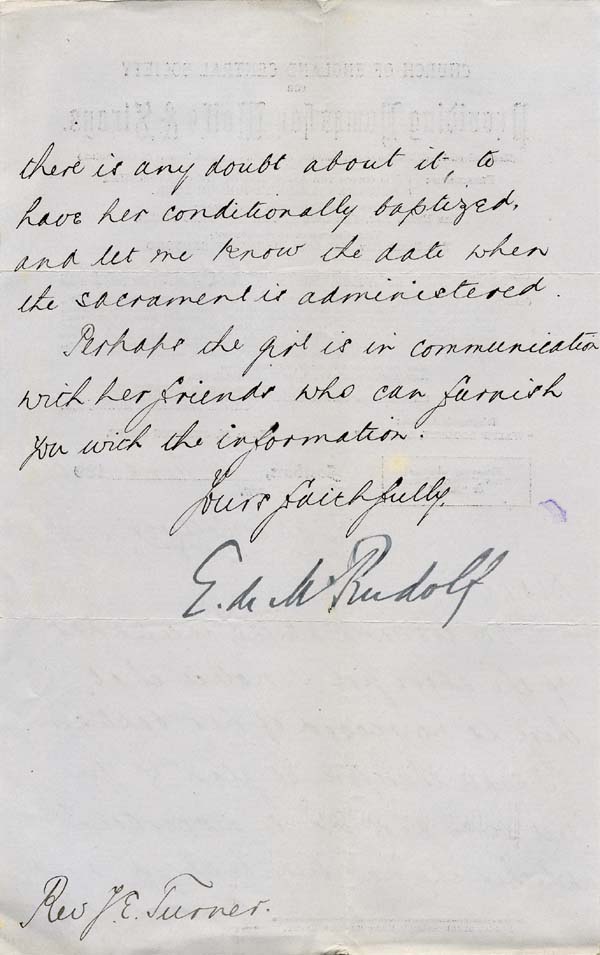 there is any doubt about it, to
have her conditionally baptized,
and let me know the date when
the sacrament is administered.
Perhaps the girl is in communication
with her friends who can furnish
you with the information.
Yours faithfully,
E. de M Rudolf
Rev J. E. Turner.